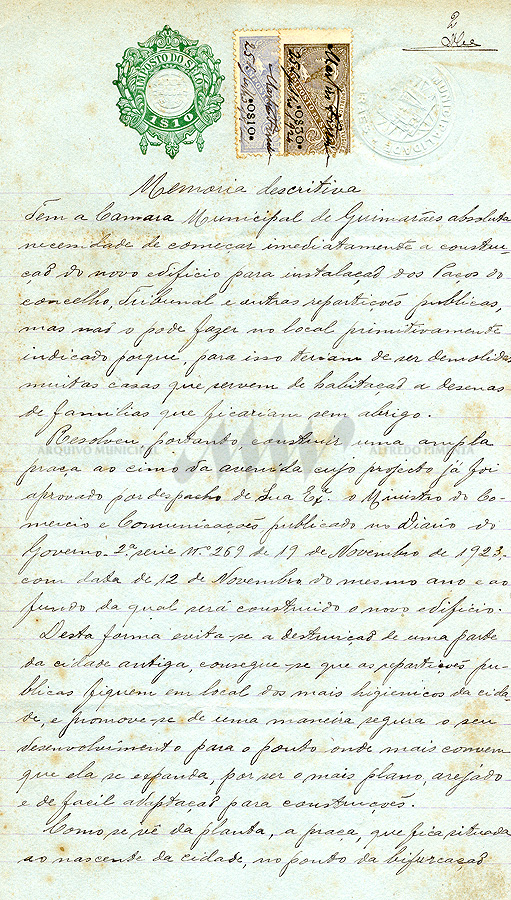 2
IMPOSTO DO SELO
1$10
0$10
0$30
Memoria descritiva
Tem a Camara Municipal de Guimarães absoluta
necessidade de começar imediatamente a constru-
ção do novo edificio para instalação dos Paços do
concelho, Tribunal e outras repartições publicas,
mas não o pode fazer no local primitivamente
indicado porque, para isso teriam de ser demolidas
muitas casas que servem de habitação a desenas
de familias que ficariam sem abrigo.
Resolveu, portanto, construir uma ampla
ARQUIVO MUNICIPAL ALFREDO PIMENTA
praça ao cimo da avenida cujo projecto já foi
aprovado por despacho de Sua Exª. o Ministro do Co-
mercio e Comunicações publicado no Diario do
Governo-2ª serie nº 269 de 19 de Novembro de 1923,
com data de 12 de Novembro do mesmo ano e ao
fundo da qual será construido o novo edificio.
Desta fórma evita-se a destruição de uma parte
da cidade antiga, consegue-se que as repartições pu-
blicas fiquem em local dos mais higienicos da cida-
de, e promove-se de uma maneira segura o seu
desenvolvimento para o ponto onde mais convem
que ela se expanda, por ser o mais plano, arejado
e de facil adaptação para construções.
Como se vê da planta, a praça, que fica situada
ao nascente da cidade, no ponto da bifurcação